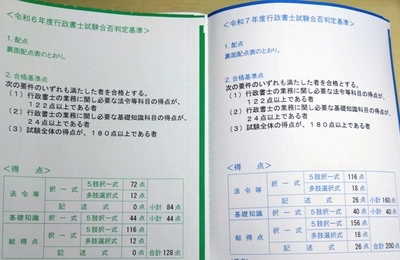 <令和6年度行政書士試験合否判定基準>
1. 配点
裏面配点表のとおり。
2. 合格基準点
次の要件のいずれも満たした者を合格とする。
(1) 行政書士の業務に関し必要な法令等科目の得点が、
122点以上である者
(2) 行政書士の業務に関し必要な基礎知識科目の得点が、
24点以上である者
(3) 試験全体の得点が、180点以上である者
<得 点>
法令等 択一式 5肢択一式 72点
多肢選択式 12点
記述式 0点 小計 84点
基礎知識 択一式 5肢択一式 44点 小計 44点
総得点 択一式 5肢択一式 116点
多肢選択式 12点
記述式 0点 合計128点
<令和7年度行政書士試験合否判定基準>
1. 配点
裏面配点表のとおり。
2. 合格基準点
次の要件のいずれも満たした者を合格とする。
(1) 行政書士の業務に関し必要な法令等科目の得点が、
122点以上である者
(2) 行政書士の業務に関し必要な基礎知識科目の得点が、
24点以上である者
(3) 試験全体の得点が、180点以上である者
<得 点>
法令等 択一式 5肢択一式 116点
多肢選択式 18点
記述式 26点 小計160点
基礎知識 択一式 5肢択一式 40点 小計 40点
総得点 択一式 5肢択一式 156点
多肢選択式 18点
記述式 26点 合計200点